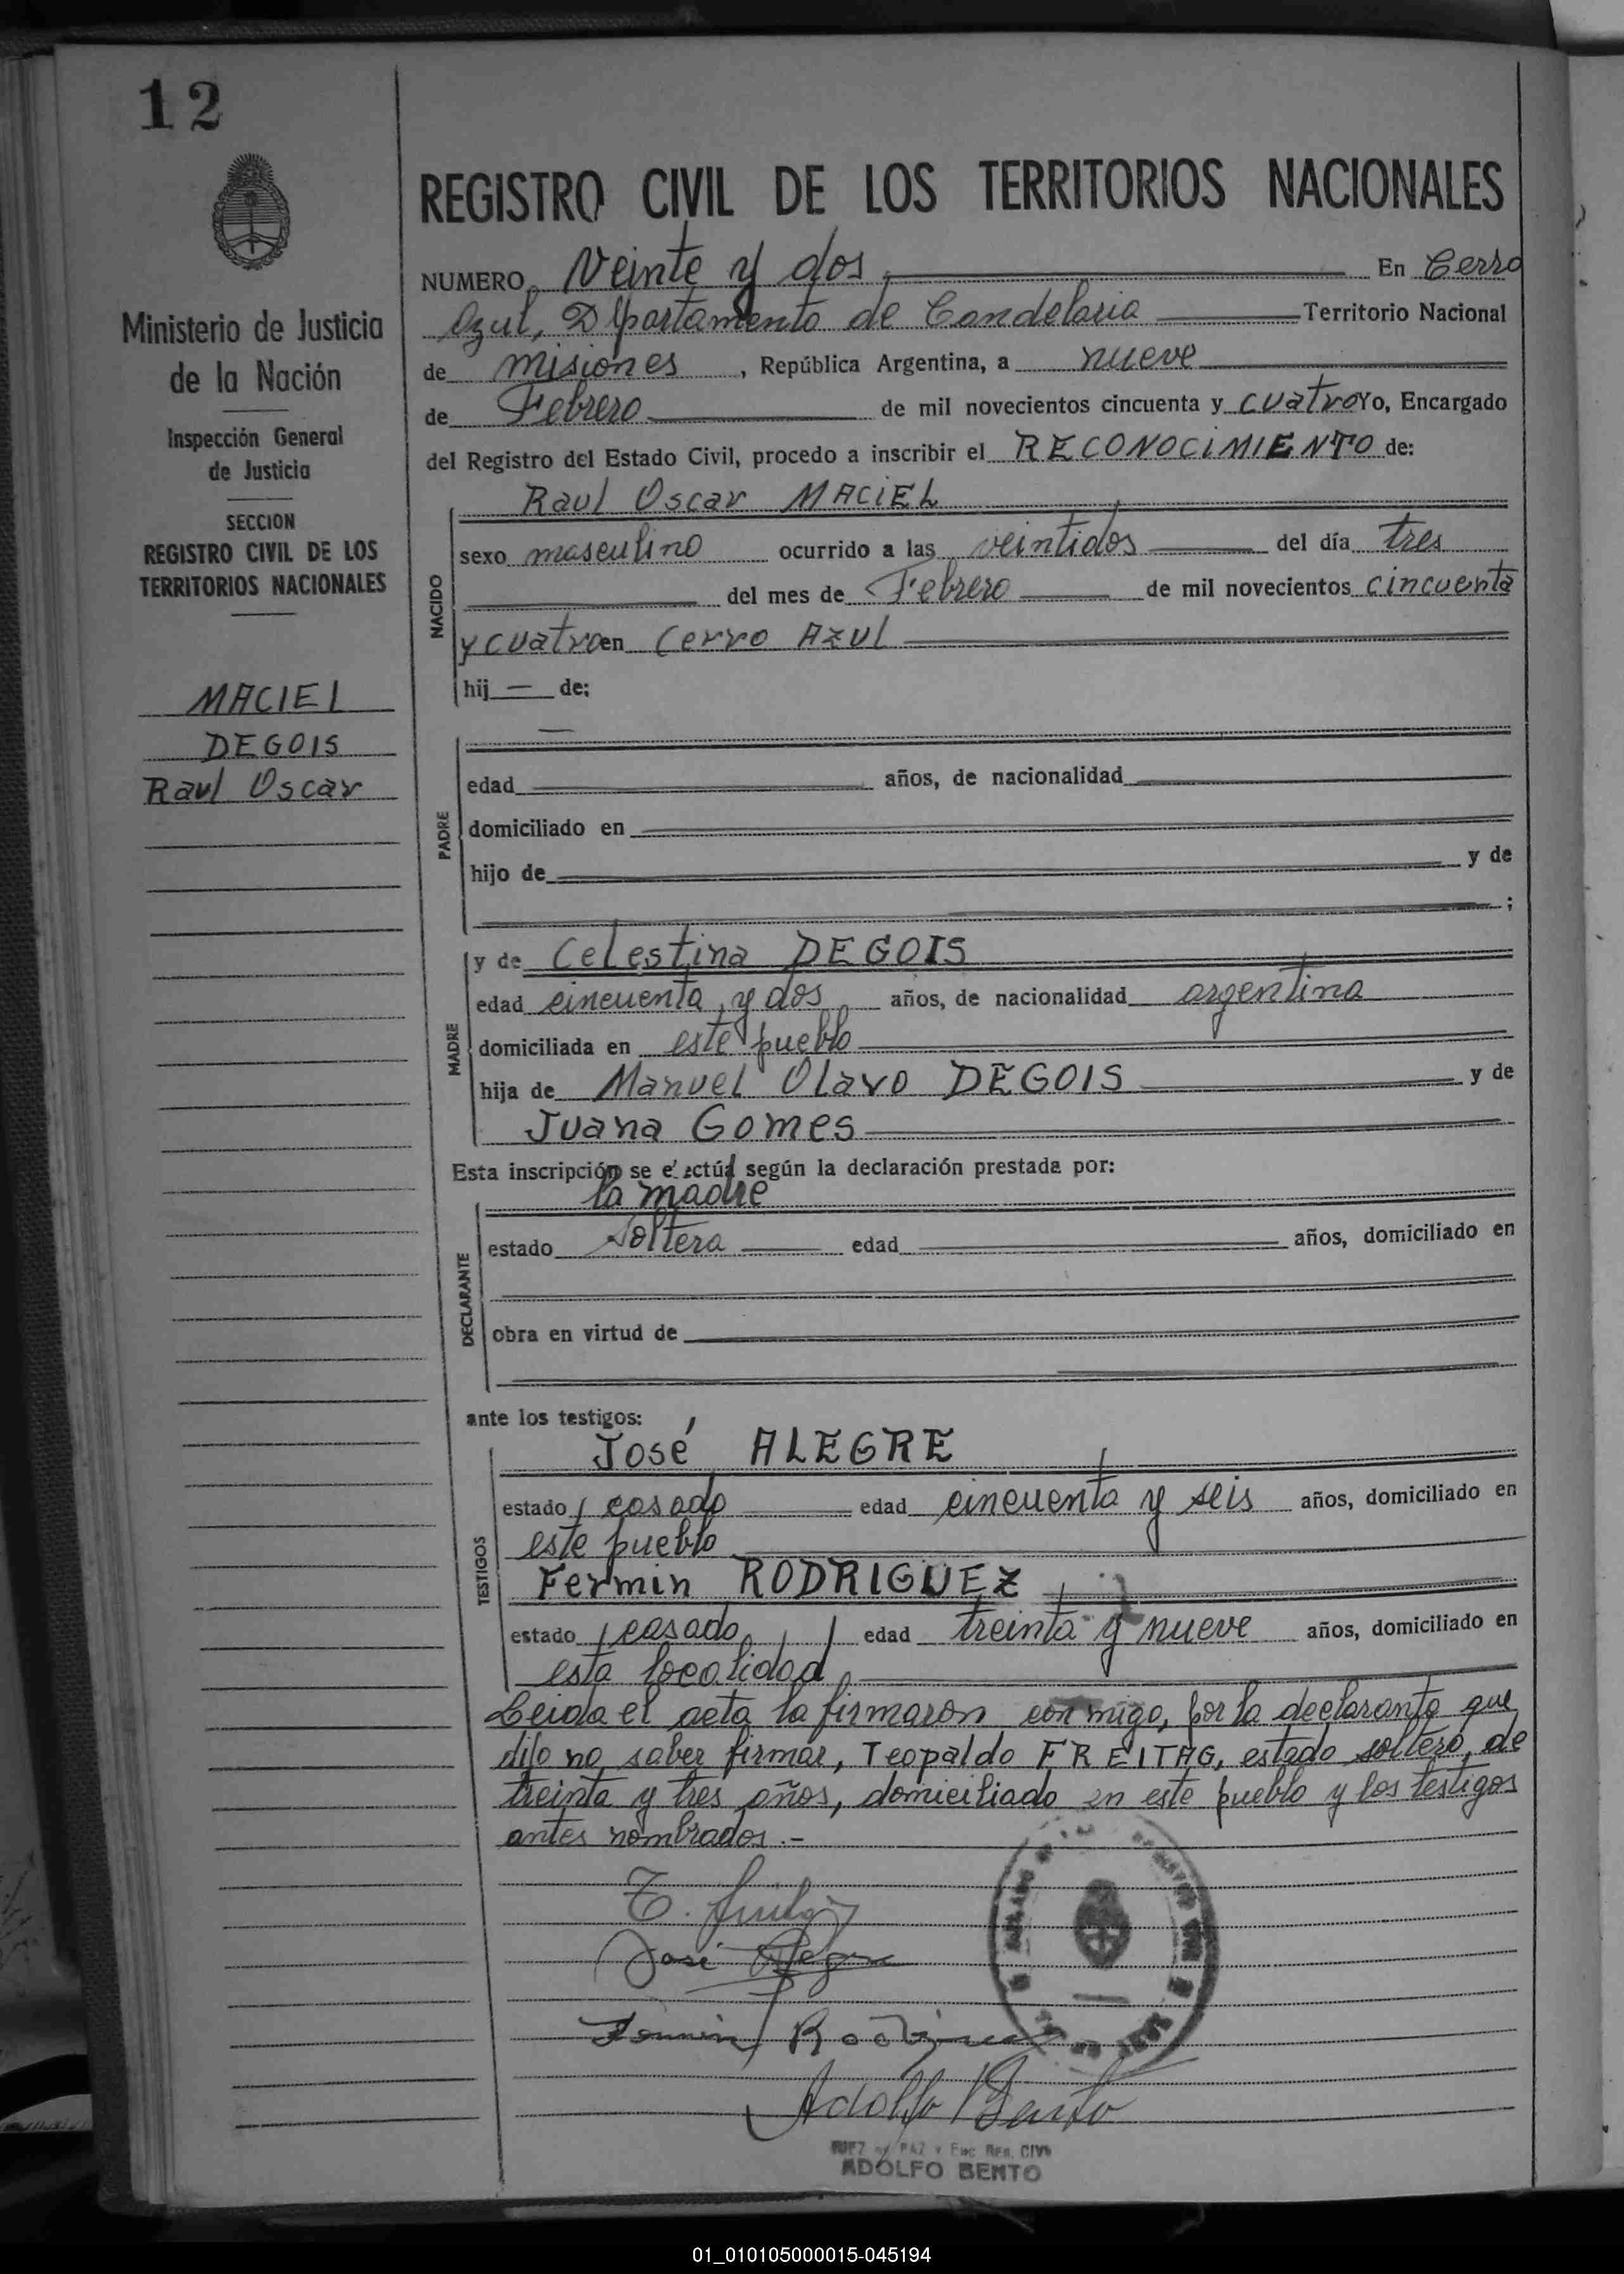 12
Ministerio de Justicia
de la Nación
Inspección General
de Justicia
SECCION
REGISTRO CIVIL DE LOS
TERRITORIOS NACIONALES
MACIEL
DEGOIS
Raul Oscar
REGISTRO CIVIL DE LOS TERRITORIOS NACIONALES
NUMERO Veinte y dos En Cerro
Azul, Departamento de Candelaria Territorio Nacional
de misiones, República Argentina, a nueve
de Febrero de mil novecientos cincuenta y cuatro Yo, Encargado
del Registro del Estado Civil, procedo a inscribir el RECONOCIMIENTO de:
NACIDO
Raul Oscar MACIEL
sexo masculino ocurrido a las veintidos del día tres
del mes de Febrero de mil novecientos cincuenta
y cuatro en Cerro AZUL
hij — de:
PADRE
—
edad años, de nacionalidad
domiciliado en
hijo de y de
;
MADRE
y de Celestina DEGOIS
edad cincuenta y dos años, de nacionalidad argentina
domiciliada en este pueblo
hija de Manuel Olavo DEGOIS y de
Juana Gomes
Esta inscripción se efectúa según la declaración prestada por:
DECLARANTE
la madre
estado soltera edad años, domiciliado en
obra en virtud de
ante los testigos:
TESTIGOS
José ALEGRE
estado casado edad cincuenta y seis años, domiciliado en
este pueblo
Fermin RODRIGUEZ
estado casado edad treinta y nueve años, domiciliado en
esta localidad
Leida el acta la firmaron conmigo, por la declarante que
dijo no saber firmar, Teopaldo FREITAG, estado soltero, de
treinta y tres años, domiciliado en este pueblo y los testigos
antes nombrados.-
José Alegre
Fermin Rodriguez
Adolfo Bento
JUEZ DE PAZ Y ENC. REG. CIVIL
ADOLFO BENTO
01_010105000015-045194